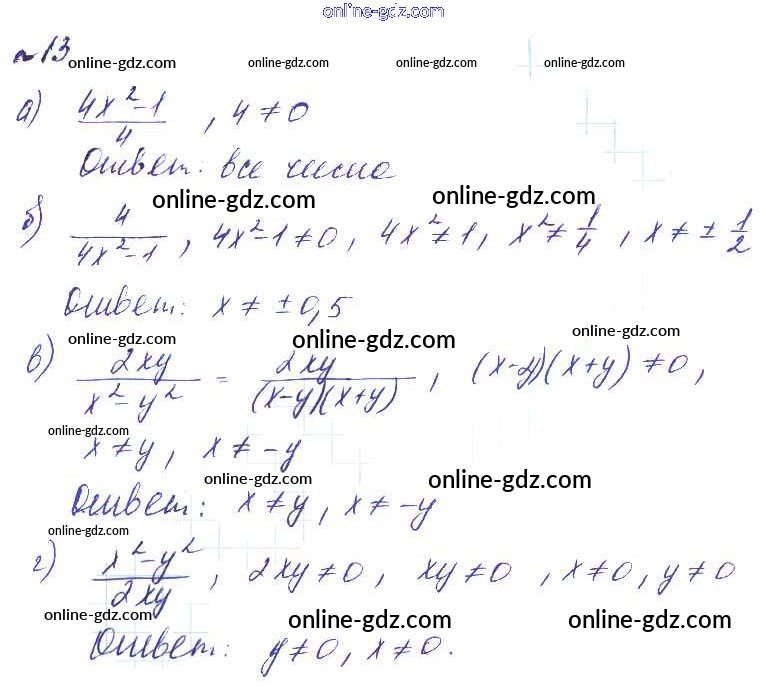 online-gdz.com
№13
online-gdz.com online-gdz.com online-gdz.com online-gdz.com
а) (4x²-1)/4 , 4 ≠ 0
Ответ: все числа
online-gdz.com online-gdz.com
б) 4/(4x²-1) , 4x²-1≠0, 4x²≠1, x²≠1/4 , x ≠ ± 1/2
Ответ: x ≠ ±0,5
online-gdz.com online-gdz.com online-gdz.com
в) 2xy/(x²-y²) = 2xy/((x-y)(x+y)) , (x-y)(x+y) ≠0,
online-gdz.com
x≠y, x ≠ -y
online-gdz.com online-gdz.com
Ответ: x ≠ y, x ≠ -y
online-gdz.com
г) (x²-y²)/(2xy) , 2xy≠0, xy≠0 , x≠0, y≠0
online-gdz.com online-gdz.com online-gdz.com
Ответ: y≠0, x≠0.